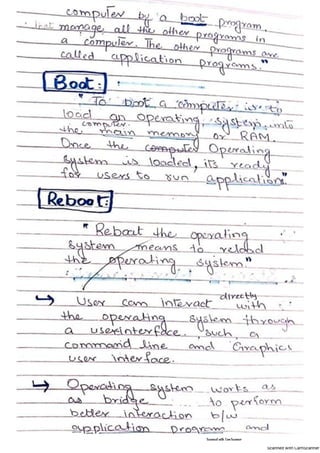 computer by a boot program.
that manage all the other programs in
a computer. The other programs are
called application programs."
Boot:
"To boot a computer is to
load an operating system into
the computer main memory or RAM.
Once the computer Operating
system is loaded, its ready
for users to run applications"
Reboot:
"Reboot the operating
system means to reload
the operating system."
→ User can interact directly with
the operating system through
a userinterface, such, a
command line and Graphics
user Interface.
→ Operating system works as
as bridge to perform
better interaction b/w
application program and
Scanned with CamScanner
Scanned with CamScanner